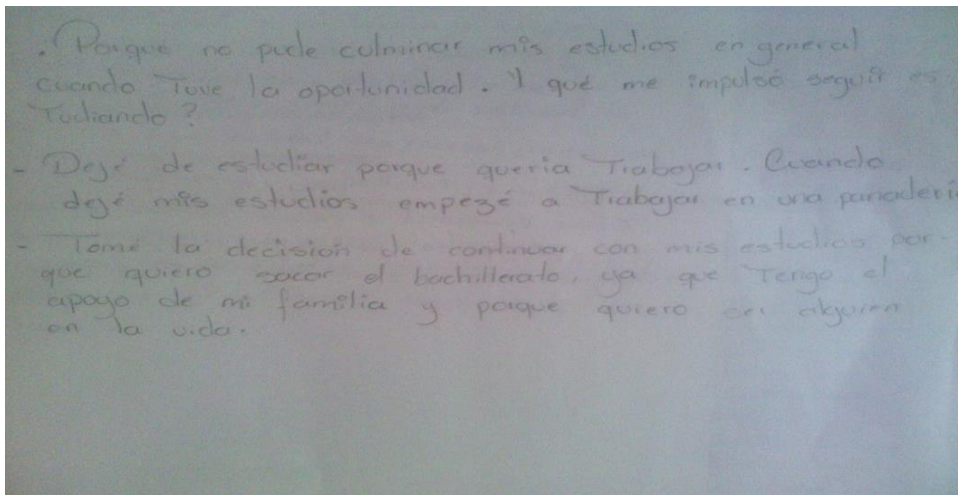 . ¿Porque no pude culminar mis estudios en general
cuando Tuve la oportunidad. Y qué me impulsó seguir es
Tudiando?
- Dejé de estudiar porque queria Trabajar. Cuando
dejé mis estudios empezé a Trabajar en una panaderi
- Tomé la decisión de continuar con mis estudios por-
que quiero sacar el bachillerato, ya que Tengo el
apoyo de mi familia y porque quiero ser alguien
en la vida.